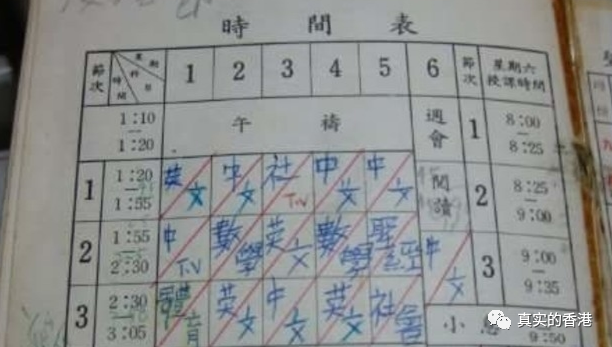 時間表
節次 星期 科目 時間 1 2 3 4 5 6 節次 星期六授課時間
1:10–1:20 午禱 週會 1 8:00–8:25
1 1:20–1:55 英文 中文 社T.V 中文 中文 閱讀 2 8:25–9:00
2 1:55–2:30 中T.V 數學 英文 數學 聖經 中文 3 9:00–9:35
3 2:30–3:05 體育 英文 中文 英文 社 小息 9:50
真实的香港